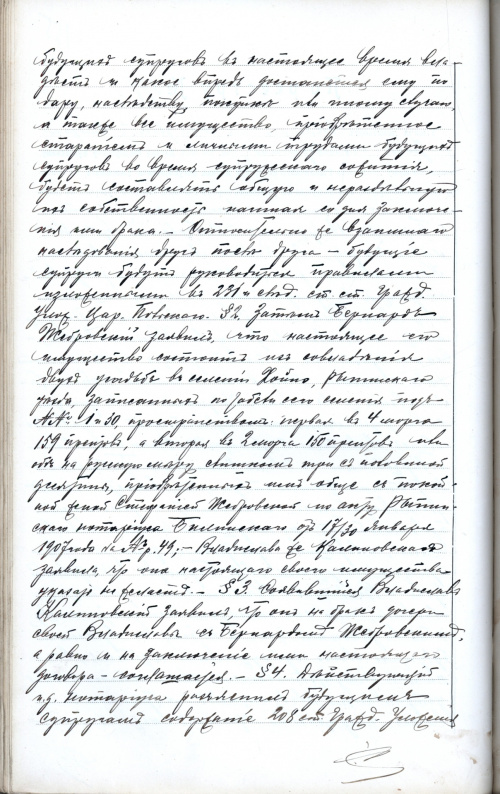 будущихъ супруговъ въ настоящее время вла-
дѣетъ и какое впредь достанется ему по
дару, наслѣдству, покупкѣ или иному случаю,
а также все имущество, пріобрѣтенное
стараніемъ и личными трудами будущихъ
супруговъ во время супружескаго сожитія,
будетъ составлять общую и нераздѣльную
ихъ собственность начиная со дня заключе-
нія ими брака. - Относительно же взаимнаго
наслѣдованія другъ послѣ друга - будущіе
супруги будутъ руководиться правилами
изложенными въ 231 и слѣд. ст. ст. Гражд.
Улож. Цар. Польскаго. §2. Затѣмъ Бернардъ
Жебровскій заявилъ, что настоящее его
имущество состоитъ изъ совладѣнія
двухъ усадьбъ въ селеніи Хойно, Рыпинскаго
уѣзда, записанныхъ по табели сего селенія подъ
№№ 1 и 30, пространствомъ: первая въ 4 морга
159 прентовъ, а вторая въ 2 морга 150 прентовъ или
обѣ на русскую мѣру три съ половиной
десятины, пріобрѣтенныхъ имъ обще съ покой-
ной женой Жебровской по акту Рыпин-
скаго нотаріуса Билинскаго отъ 17/30 Января
1907 года за № р. 49; - Владислава же Калиновская
заявила, что она настоящаго своего имущества
указать не желаетъ. - §3. Владиславъ
Калиновскій заявилъ, что онъ на бракъ дочери
своей Владиславы съ Бернардомъ Жебровскимъ,
а равно и на заключеніе ими настоящаго
договора - соглашается. - §4. Дѣйствующій
и.д. нотаріуса разъяснилъ будущимъ
супругамъ содержаніе 208 ст. Гражд. Уложенія